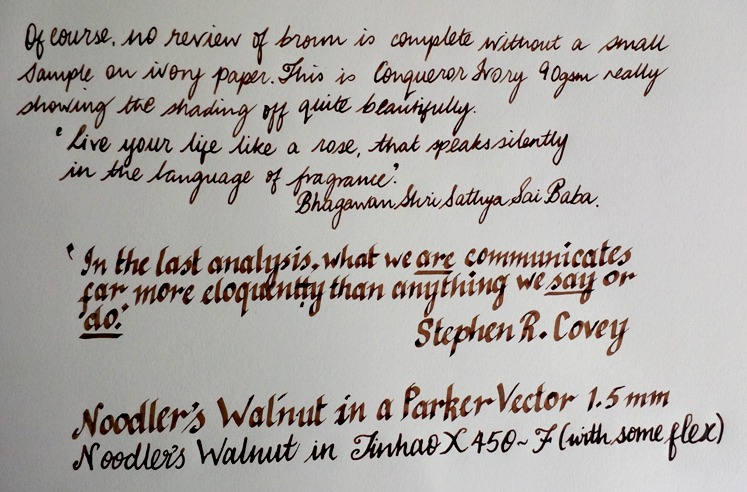 Of course, no review of brown is complete without a small
sample on ivory paper. This is Conqueror Ivory 90gsm really
showing the shading off quite beautifully.
"Live your life like a rose, that speaks silently
in the language of fragrance".
Bhagawan Shri Sathya Sai Baba.
"In the last analysis, what we are communicates
far more eloquently than anything we say or
do."
Stephen R. Covey
Noodler's Walnut in a Parker Vector 1.5 mm
Noodler's Walnut in Jinhao X 450 ~ F (with some flex)